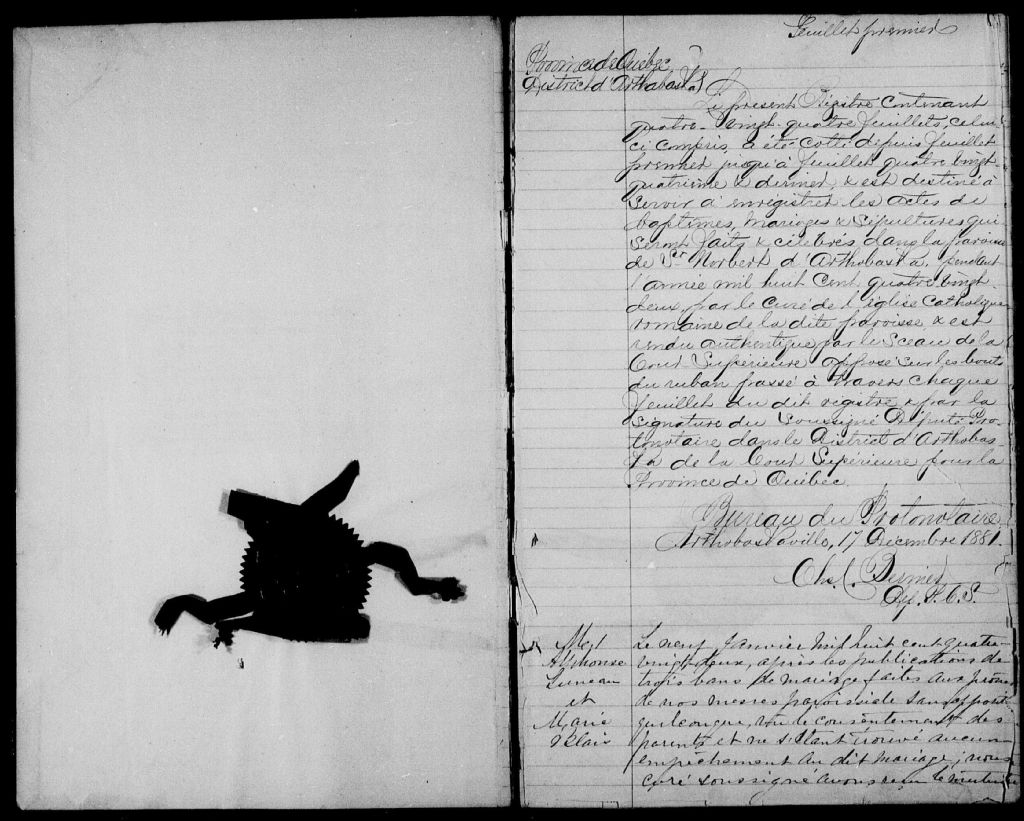 Feuillet premier
Province de Québec
District d'Arthabaska
Le présent Régistre, contenant
quatre-vingt-quatre feuillets, celui-
ci compris, a été cotté depuis feuillet
premier jusqu'à feuillet quatre vingt-
quatrième & dernier, & est destiné à
servir à enrégistrer les actes de
baptêmes, mariages & sépultures qui
seront faits & célébrés dans la paroisse
de St Norbert d'Arthabaska, pendant
l'année mil huit cent quatre vingt-
deux, par le curé de l'église catholique
romaine de la dite paroisse & est
rendu authentique par le Sceau de la
Cour Supérieure apposé sur les bouts
du ruban passé à travers chaque
feuillet du dit régistre & par la
signature du Soussigné Député Pro-
tonotaire dans le District d'Arthabas
ka de la Cour Supérieure pour la
Province de Québec.
Bureau du Protonotaire
Arthabaskaville, 17 Décembre 1881.
Chs.
Dep. P. C. S.
M. 1
Alphonse
Luneau
et
Marie
Le neuf Janvier mil huit cent quatre-
vingt deux, après les publications de
trois bans de mariage faites aux prônes
de nos messes paroissiales sans opposit.
quelconque, vu le consentement des
parents et ne s'étant trouvé aucun
empêchement au dit mariage; nous
curé soussigné avons reçu le mutuel